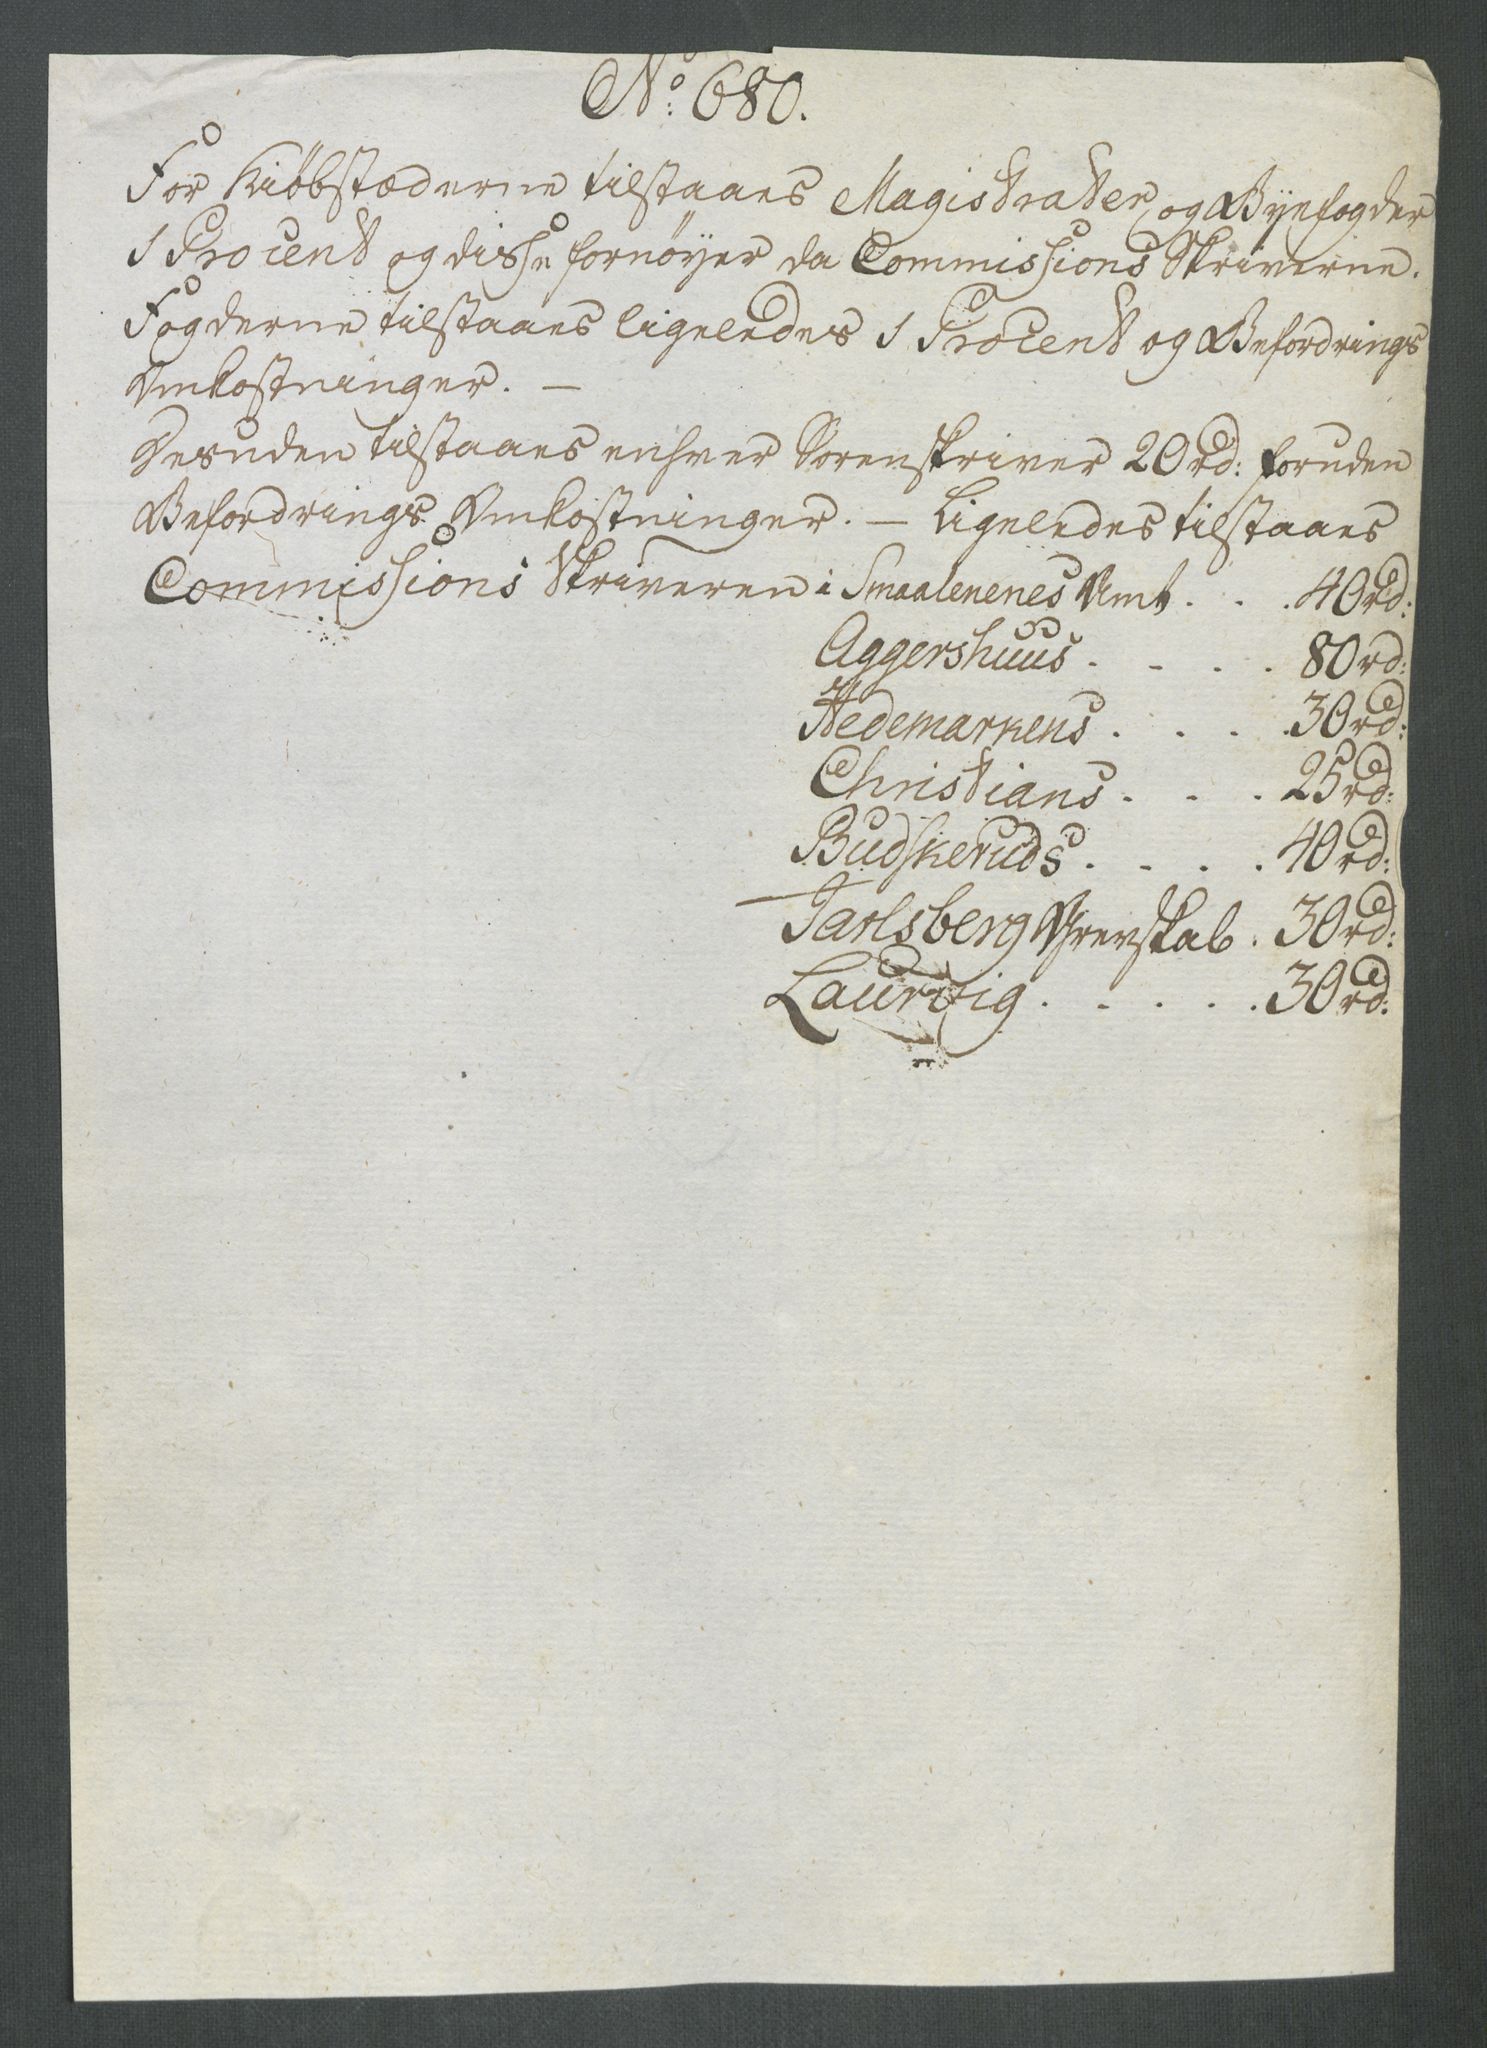 No: 680.
For Kiöbstæderne tilstaaes Magistrater og Byefogder
1 Procent og disse fornöyer da Commissions Skriverne.
Fogderne tilstaaes ligeledes 1 Procent og Befordrings
Omkostninger. –
Desuden tilstaaes enhver Sorenskriver 20 rd: foruden
Befordrings Omkostninger. – Ligeledes tilstaaes
Commissions Skriveren i Smaalenenes Amt . . . 40 rd:
Aggershuus . . . . 80 rd:
Hedemarkens . . . . 30 rd:
Christians . . . 25 rd:
Budskeruds . . . . 40 rd:
Jarlsberg Grevskab . 30 rd:
Laurvig . . . . . 30 rd: